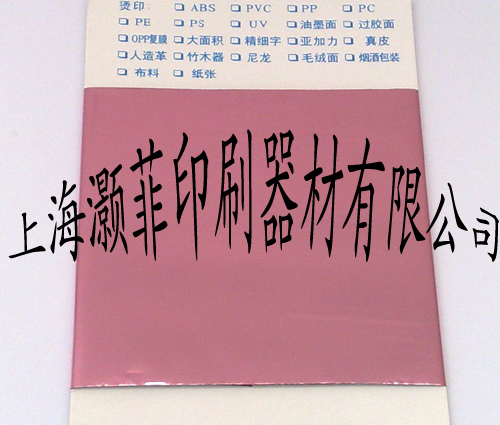 烫印: □ ABS □ PVC □ PP □ PC
□ PE □ PS □ UV □ 油墨面 □ 过胶面
□ OPP复膜 □ 大面积 □ 精细字 □ 亚加力 □ 真皮
□ 人造革 □ 竹木器 □ 尼龙 □ 毛绒面 □ 烟酒包装
□ 布料 □ 纸张
上海灏菲印刷器材有限公司